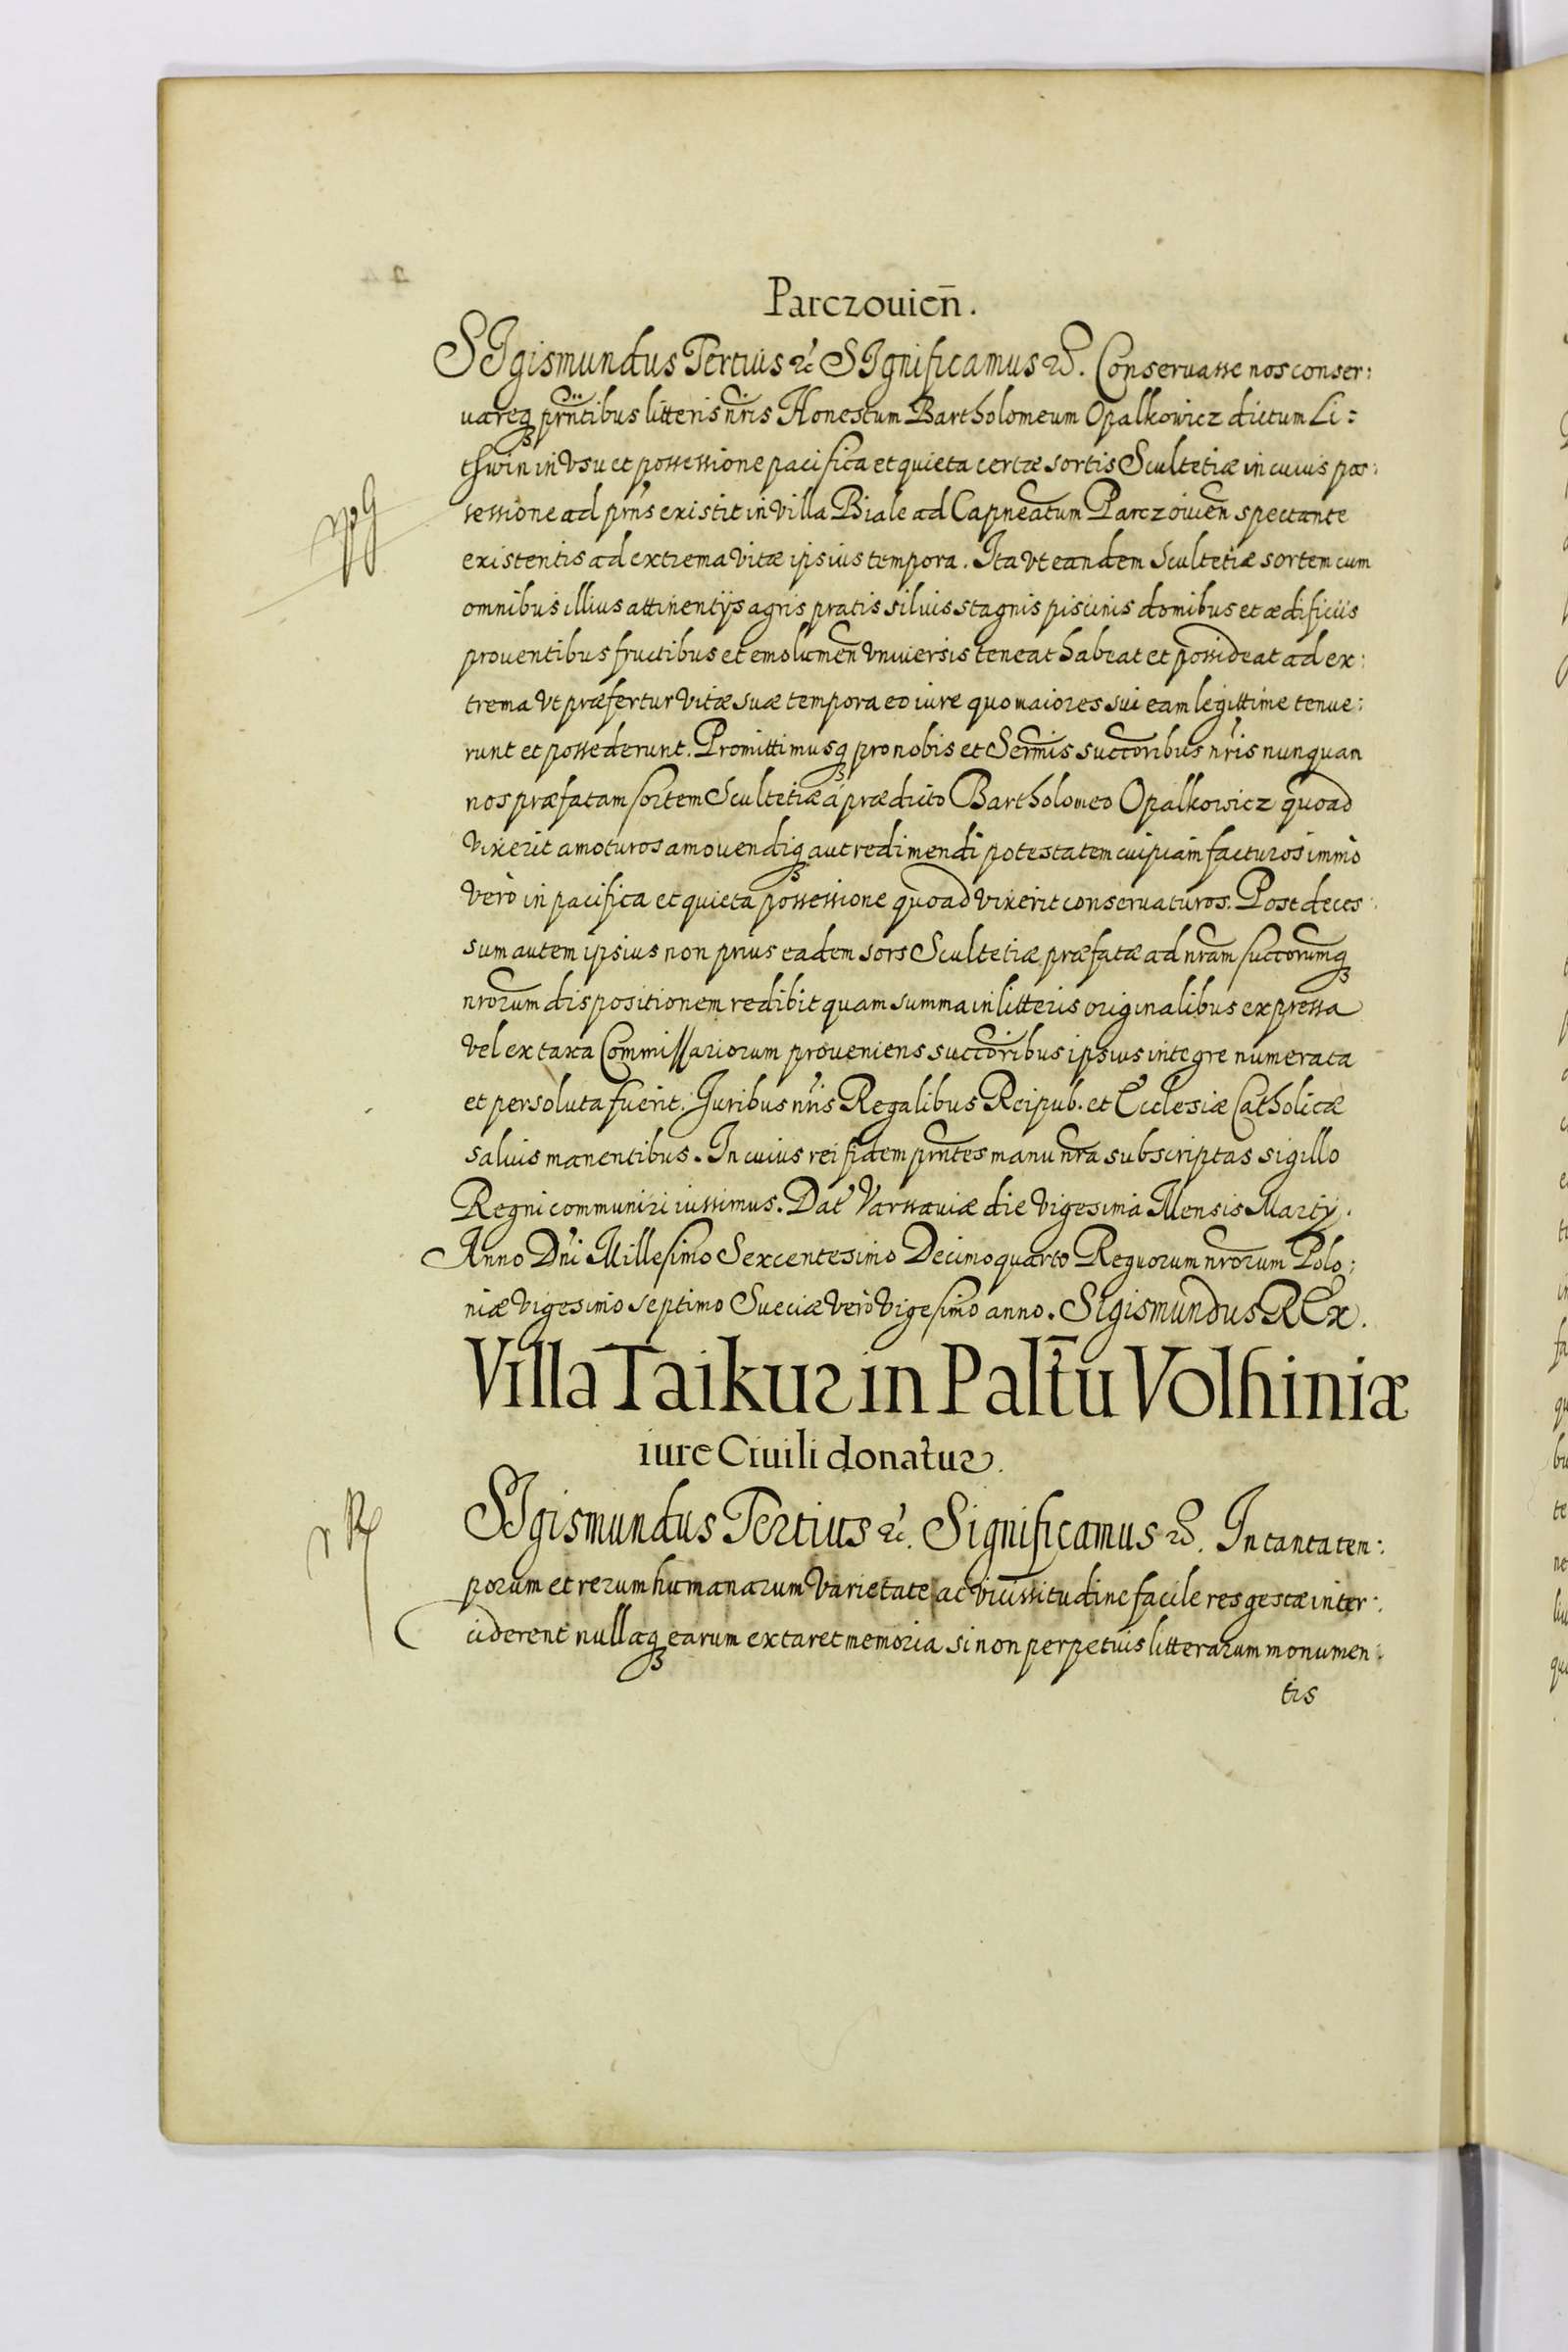 Parczouien̄.
SIgismundus Tertius &c SIgnificamus &c. Conseruasse nos conser:
uareq₃ prn̄tibus litteris nr̄is Honestum Bartholomeum Opalkowicz dictum Li:
thwin in Vsu et possessione pacifica et quieta certæ sortis Scultetiæ in cuius pos:
sessione ad prn̄s existit in Villa Biale ad Capneatum Parczouien̄ spectante
existentis ad extrema Vitæ ipsius tempora. Ita Vt eandem Scultetiæ sortem cum
omnibus illius attinentijs agris pratis siluis stagnis piscinis domibus et ædificiis
prouentibus fructibus et emolumen̄ Vniuersis teneat habeat et possideat ad ex:
trema Vt præfertur Vitæ suæ tempora eo iure quo maiores sui eam legittime tenue:
runt et possederunt. Promittimusq₃ pro nobis et Serm̄is succoribus nr̄is nunquan
nos præfatam sortem Scultetiæ á prædicto Bartholomeo Opalkowicz quoad
Vixerit amoturos amouendiq₃ aut redimendi potestatem cuipiam facturos immò
Verò in pacifica et quieta possessione quoad Vixerit conseruaturos. Post deces:
sum autem ipsius non prius eadem sors Scultetiæ præfatæ ad nram succorumq₃
nrorum dispositionem redibit quam summa in litteris originalibus expressa
Vel ex taxa Commissariorum proueniens succoribus ipsius integre numerata
et persoluta fuerit. Juribus nr̄is Regalibus Reipub. et Ecclesiæ Catholicæ
saluis manentibus. In cuius rei fidem prn̄tes manu nra subscriptas sigillo
Regni communiri iussimus. Dat Varssauiæ die Vigesima Mensis Martij.
Anno Dn̄i Millesimo Sexcentesimo Decimoquarto Regnorum nrorum Polo:
niæ Vigesimo septimo Sueciæ Verò Vigesimo anno. SIgismundus REx.
Villa Taikus in Palt̄u Volhiniæ
iure Ciuili donatus.
SIgismundus Tertius &c. Significamus &c. In tanta ten:
porum et rerum humanarum Varietate ac vicissitudine facile res gestæ inter:
ciderent nullaq₃ earum extaret memoria si non perpetuis litterarum monumen:
tis